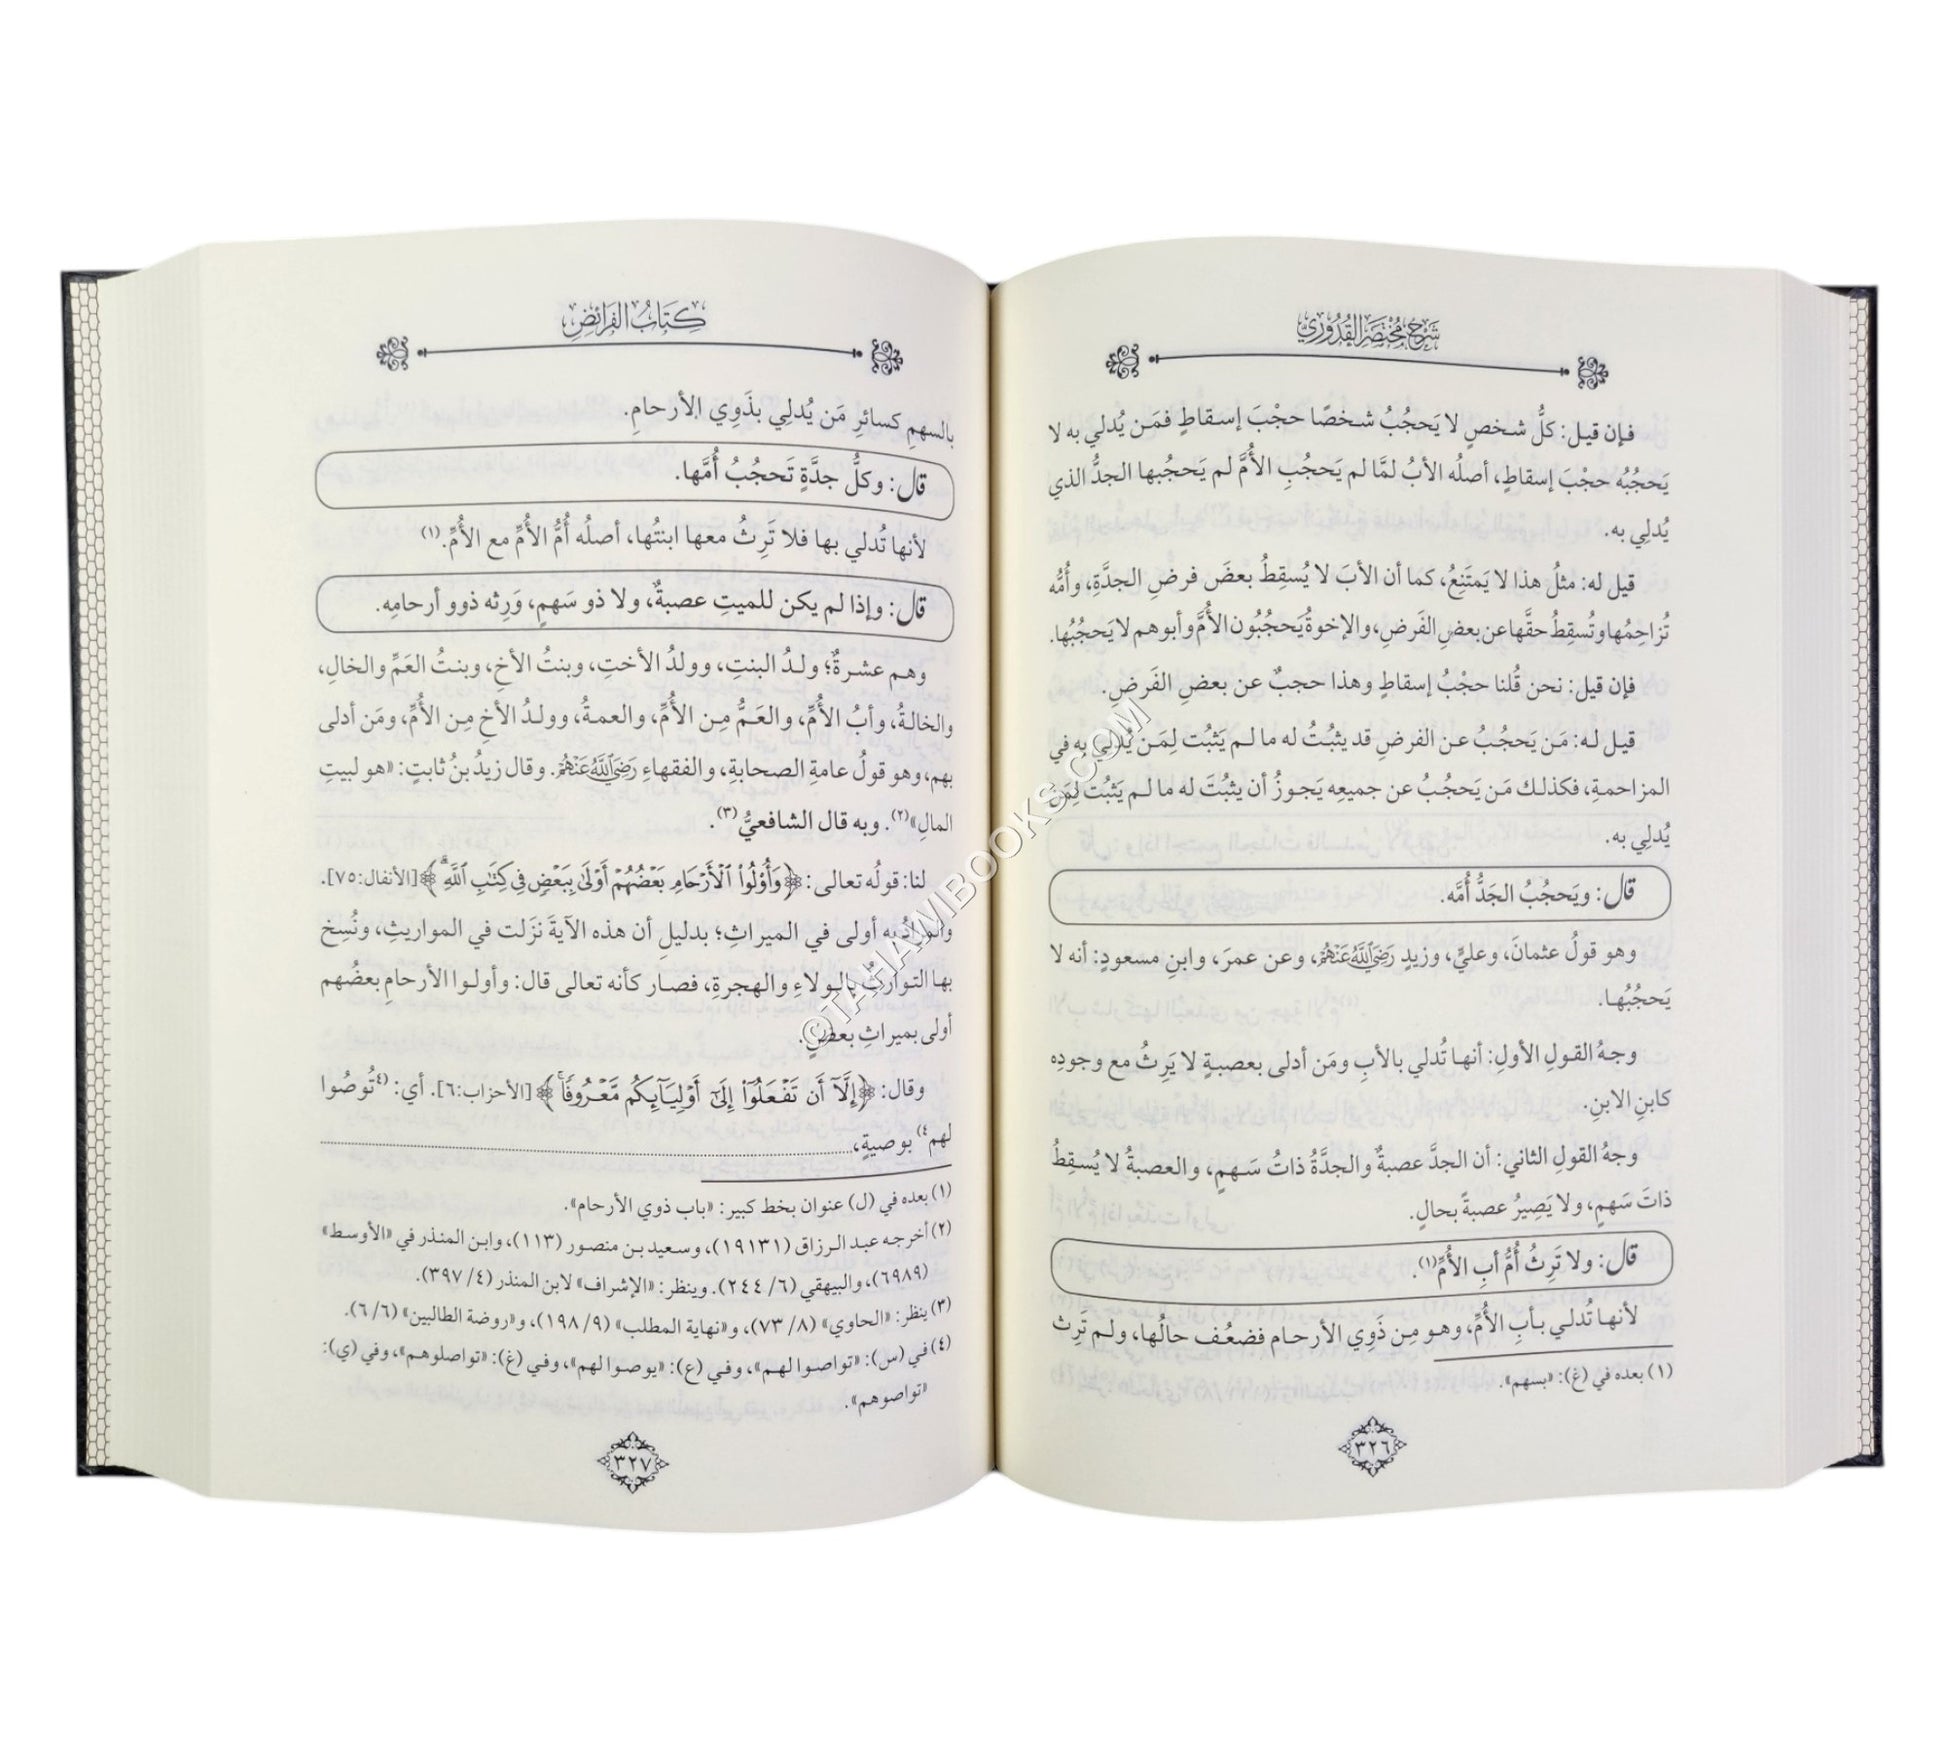 شَرْحُ مُخْتَصَرِ القُدُورِيِّ
فإن قيل: كلُّ شخصٍ لا يَحجُبُ شخصًا حجْبَ إسقاطٍ فمَن يُدلي به لا
يَحجُبُه حجْبَ إسقاطٍ، أصلُه الأبُ لمَّا لم يَحجُبِ الأُمَّ لم يَحجُبها الجدُّ الذي
يُدلِي به.
قيل له: مثلُ هذا لا يَمتَنِعُ، كما أن الأبَ لا يُسقِطُ بعضَ فرضِ الجدَّةِ، وأُمُّه
تُزاحِمُها وتُسقِطُ حقَّها عن بعضِ الفَرضِ، والإخوةُ يَحجُبُون الأُمَّ وأبوهم لا يَحجُبُها.
فإن قيل: نحن قُلنا حجْبُ إسقاطٍ وهذا حجبٌ عن بعضِ الفَرضِ.
قيل له: مَن يَحجُبُ عن الفرضِ قد يثبُتُ له ما لم يَثبُت لِمَن يُدلي به في
المزاحمةِ، فكذلك مَن يَحجُبُ عن جميعِه يَجوزُ أن يثبُتَ له ما لم يَثبُت لِمَن
يُدلِي به.
قال: ويَحجُبُ الجَدُّ أُمَّه.
وهو قولُ عثمانَ، وعليٍّ، وزيدٍ رَضِيَ اللَّهُ عَنْهُمْ، وعن عمرَ، وابنِ مسعودٍ: أنه لا
يَحجُبُها.
وجهُ القولِ الأولِ: أنها تُدلي بالأبِ ومَن أدلى بعصبةٍ لا يَرِثُ مع وجودِه
كابنِ الابنِ.
وجهُ القولِ الثاني: أن الجدَّ عصبةٌ والجدَّةُ ذاتُ سَهمٍ، والعصبةُ لا يُسقِطُ
ذاتَ سَهمٍ، ولا يَصِيرُ عصبةً بحالٍ.
قال: ولا تَرِثُ أُمُّ أبِ الأُمِّ(١).
لأنها تُدلي بأبِ الأُمِّ، وهو مِن ذَوِي الأرحام فضعُف حالُها، ولم تَرِث
(١) بعده في (غ): «بسهم».
٣٢٦
كِتَابُ الفَرَائِضِ
بالسهمِ كسائرِ مَن يُدلِي بذَوِي الأرحامِ.
قال: وكلُّ جدَّةٍ تَحجُبُ أُمَّها.
لأنها تُدلي بها فلا تَرِثُ معها ابنتُها، أصلُه أُمُّ الأُمِّ مع الأُمِّ.(١)
قال: وإذا لم يكن للميتِ عصبةٌ، ولا ذو سَهمٍ، وَرِثه ذوو أرحامِه.
وهم عشرةٌ؛ ولدُ البنتِ، وولدُ الأختِ، وبنتُ الأخِ، وبنتُ العَمِّ والخالِ،
والخالةُ، وأبُ الأُمِّ، والعَمُّ مِن الأُمِّ، والعمةُ، وولدُ الأخِ مِن الأُمِّ، ومَن أدلى
بهم، وهو قولُ عامةِ الصحابةِ، والفقهاءِ رَضِيَ اللَّهُ عَنْهُمْ. وقال زيدُ بنُ ثابتٍ: «هو لبيتِ
المالِ»(٢). وبه قال الشافعيُّ(٣).
لنا: قولُه تعالى: ﴿وَأُوْلُواْ ٱلْأَرْحَامِ بَعْضُهُمْ أَوْلَىٰ بِبَعْضٍ فِي كِتَٰبِ ٱللَّهِ﴾ [الأنفال:٧٥].
والمرادُ به أولى في الميراثِ؛ بدليلِ أن هذه الآيةَ نزَلت في المواريثِ، ونُسِخ
بها التوارثُ بالولاءِ والهجرةِ، فصار كأنه تعالى قال: وأولوا الأرحامِ بعضُهم
أولى بميراثِ بعضٍ.
وقال: ﴿إِلَّآ أَن تَفْعَلُوٓاْ إِلَىٰٓ أَوْلِيَآئِكُم مَّعْرُوفًا﴾ [الأحزاب:٦]. أي: (٤تُوصُوا
لهم٤) بوصيةٍ،
(١) بعده في (ل) عنوان بخط كبير: «باب ذوي الأرحام».
(٢) أخرجه عبد الرزاق (١٩١٣١)، وسعيد بن منصور (١١٣)، وابن المنذر في «الأوسط»
(٦٩٨٩)، والبيهقي (٦/ ٢٤٤). وينظر: «الإشراف» لابن المنذر (٤/ ٣٩٧).
(٣) ينظر: «الحاوي» (٨/ ٧٣)، و«نهاية المطلب» (٩/ ١٩٨)، و«روضة الطالبين» (٦/ ٦).
(٤) في (س): «تواصوا لهم»، وفي (ع): «يوصوا لهم»، وفي (غ): «تواصلوهم»، وفي (ي):
«تواصوهم».
٣٢٧
©TAHAMBOOKS.COM